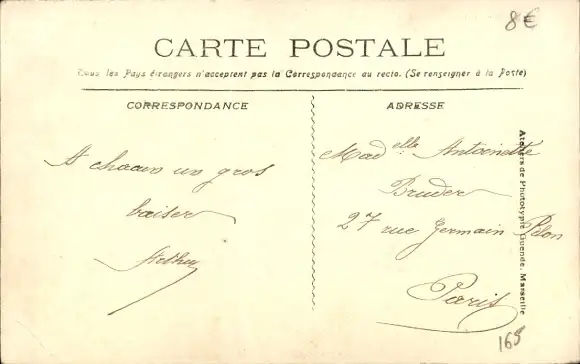 8€
CARTE POSTALE
Tous les Pays étrangers n'acceptent pas la Correspondance au recto. (Se renseigner à la Poste)
CORRESPONDANCE
A chacun un gros
baiser
Arthur
ADRESSE
Mad elle Antoinette
Bruder
27 rue Germain Pilon
Paris
Ateliers de Phototypie Guende, Marseille
165